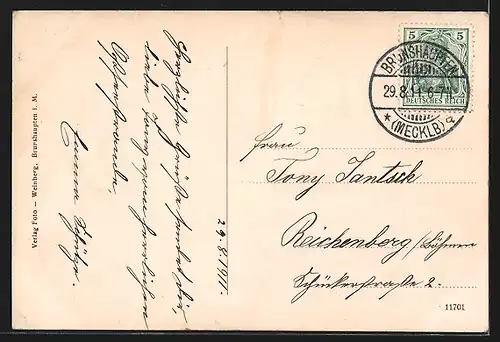 Herzliche Grüße sendet dir,
liebe Tony vom herrlichen
Ostseestrande,
Emma
29.8.1911.
Verlag Foto – Weinberg. Brunshaupten i. M.
5 5
DEUTSCHES REICH
BRUNSHAUPTEN
29.8.11. 6-7N.
* (MECKLB) a
Frau
Tony Jantsch
Reichenberg / Böhmen
Schückerstraße 2.
11701